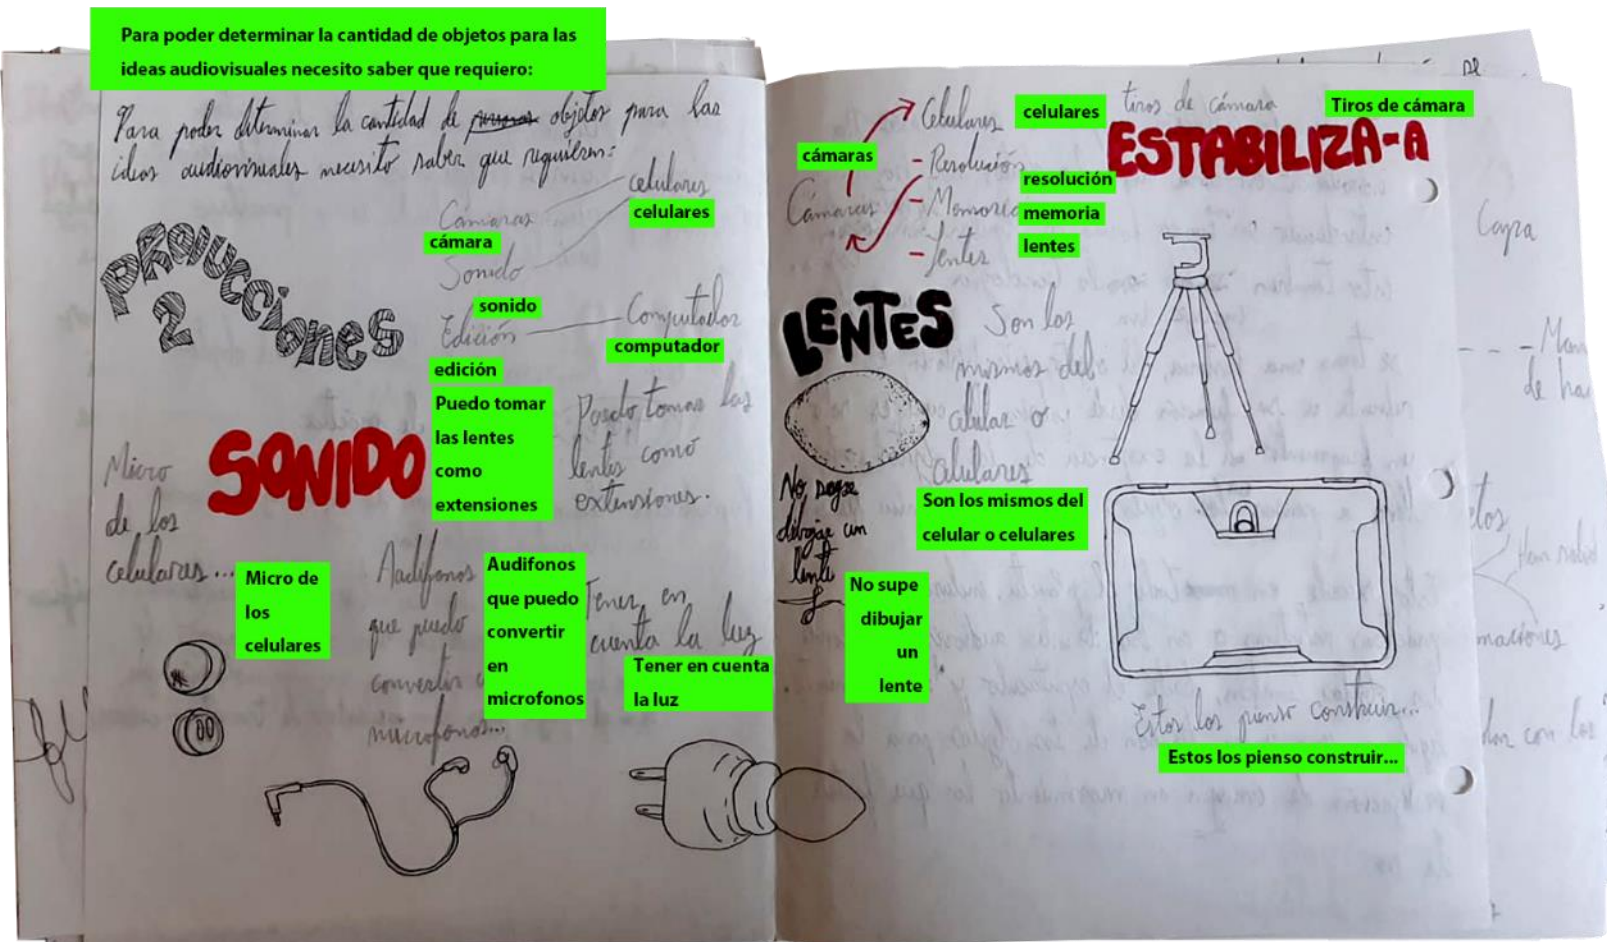 Para poder determinar la cantidad de objetos para las
ideas audiovisuales necesito saber que requiero:
Para poder determinar la cantidad de personas objetos para las
ideas audiovisuales necesito saber que requieren:
PRODUCCIONES
2
Cámaras
celulares
celulares
cámara
Sonido
sonido
Edición
Computador
computador
edición
SONIDO
Micro
de los
celulares...
Micro de
los
celulares
Puedo tomar
las lentes
como
extensiones
Puedo tomar las
lentes como
extensiones.
Audífonos
que puedo
convertir
microfonos...
Audifonos
que puedo
convertir
en
microfonos
Tener en
cuenta la luz
Tener en cuenta
la luz
Celulares
celulares
cámaras
Cámaras
- Resolución
resolución
- Memoria
memoria
- Lentes
lentes
tiros de cámara
Tiros de cámara
ESTABILIZA-A
LENTES
Son los
mismos del
celular o
celulares
Son los mismos del
celular o celulares
No supe
dibujar un
lente
No supe
dibujar
un
lente
Estos los pienso construir...
Estos los pienso construir...
Capa
de
con los